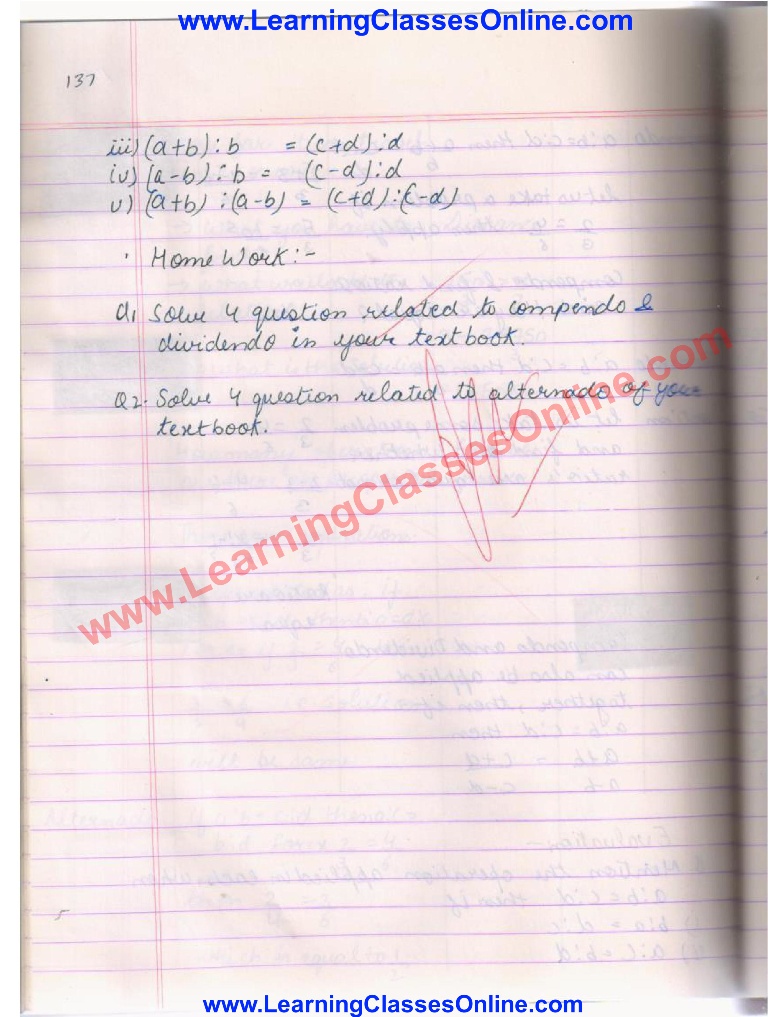 www.LearningClassesOnline.com
137
iii) (a+b) : b = (c+d) : d
iv) (a-b) : b = (c-d) : d
v) (a+b) : (a-b) = (c+d) : (c-d)
· Home Work :-
Q1 Solve 4 question related to compendo &
dividendo in your textbook.
Q2. Solve 4 question related to alternado of your
textbook.
www.LearningClassesOnline.com
5
www.LearningClassesOnline.com